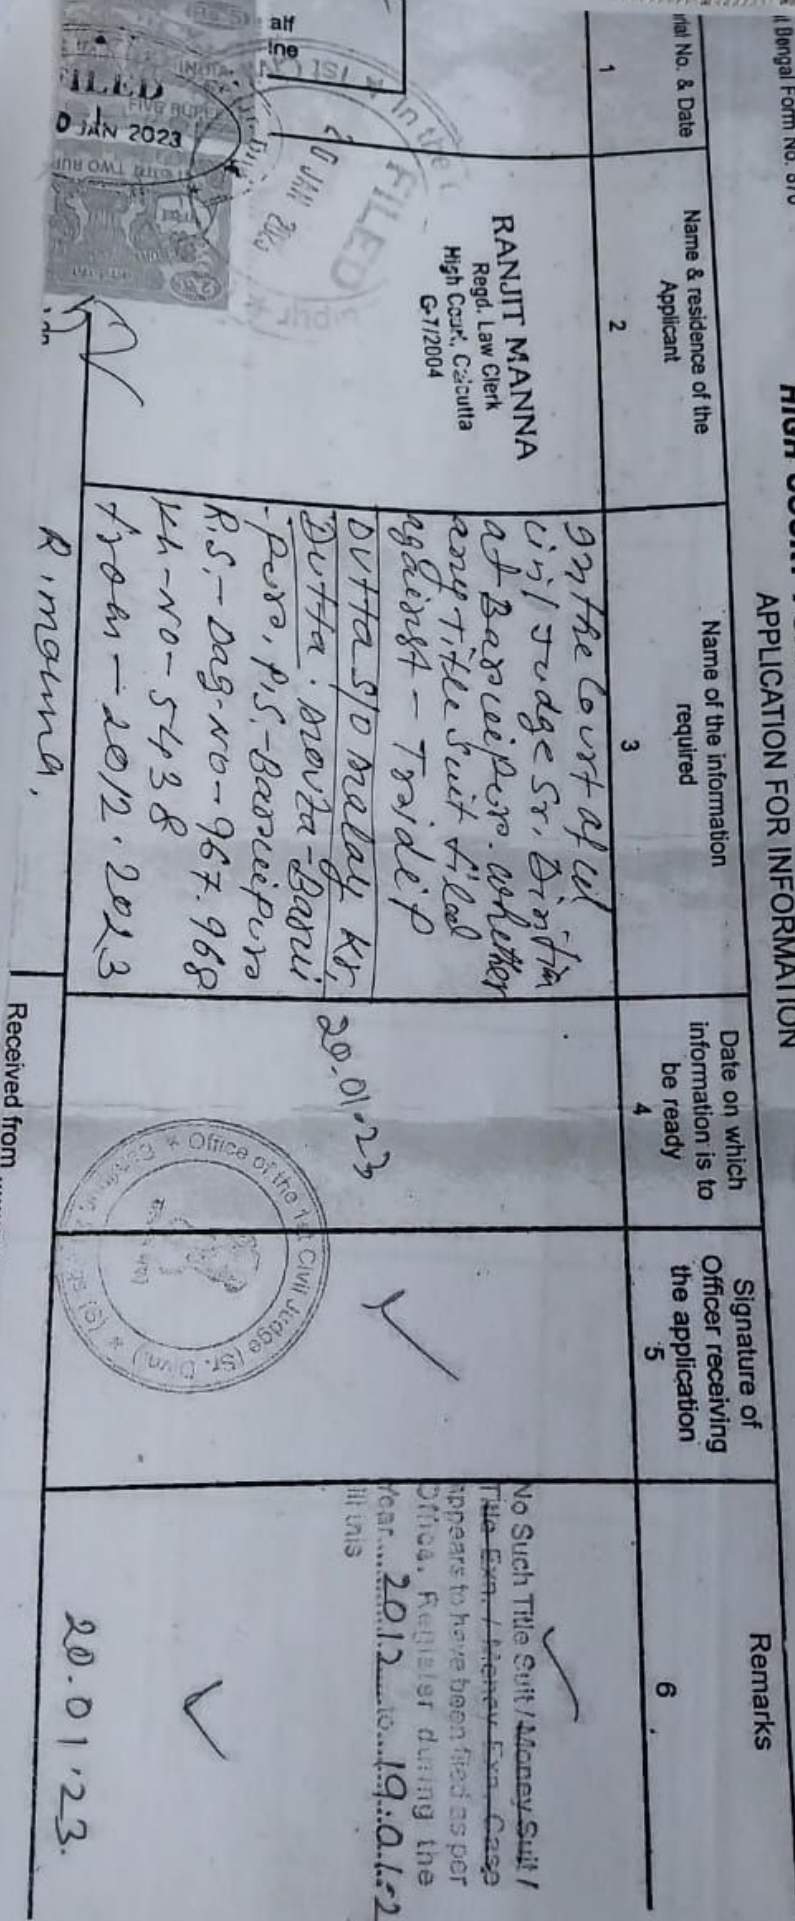 Bengal Form No.
APPLICATION FOR INFORMATION
No. & Date
Name & residence of the
Applicant
Name of the information
required
Date on which
information is to
be ready
Signature of
Officer receiving
the application
Remarks
1
2
3
4
5
6
RANJIT MANNA
Regd. Law Clerk
High Court, Calcutta
G-7/2004
In the Court of
Civil Judge Sr. Divn
at Baruipur. whether
any Title Suit filed
against - Tridip
Dutta S/o Malay Kr.
Dutta. Mouza - Barui
-pur, P.S. - Baruipur
R.S. - Dag - No - 967. 968
Kh - No - 5438
from - 2012. 2023
20.01.23
No Such Title Suit / Money Suit /
Title Exn. / Money Exn. Case
appears to have been filed as per
Office. Register during the
Year.....2012....to....19.01.2
till this
20.01.23.
R. manna.
Received from
FILED
JAN 2023
FIVE RUPEES
TWO RUP
In the
FILED
20 JAN
Office of the 1st Civil Judge (Sr. Divn.)